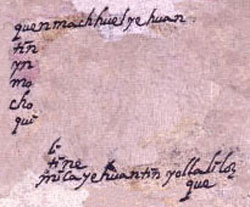 quenmachhuel yehuan
tin
yn
mo
cho
qui
li
tine
mica yehuantin yollaliloz
que